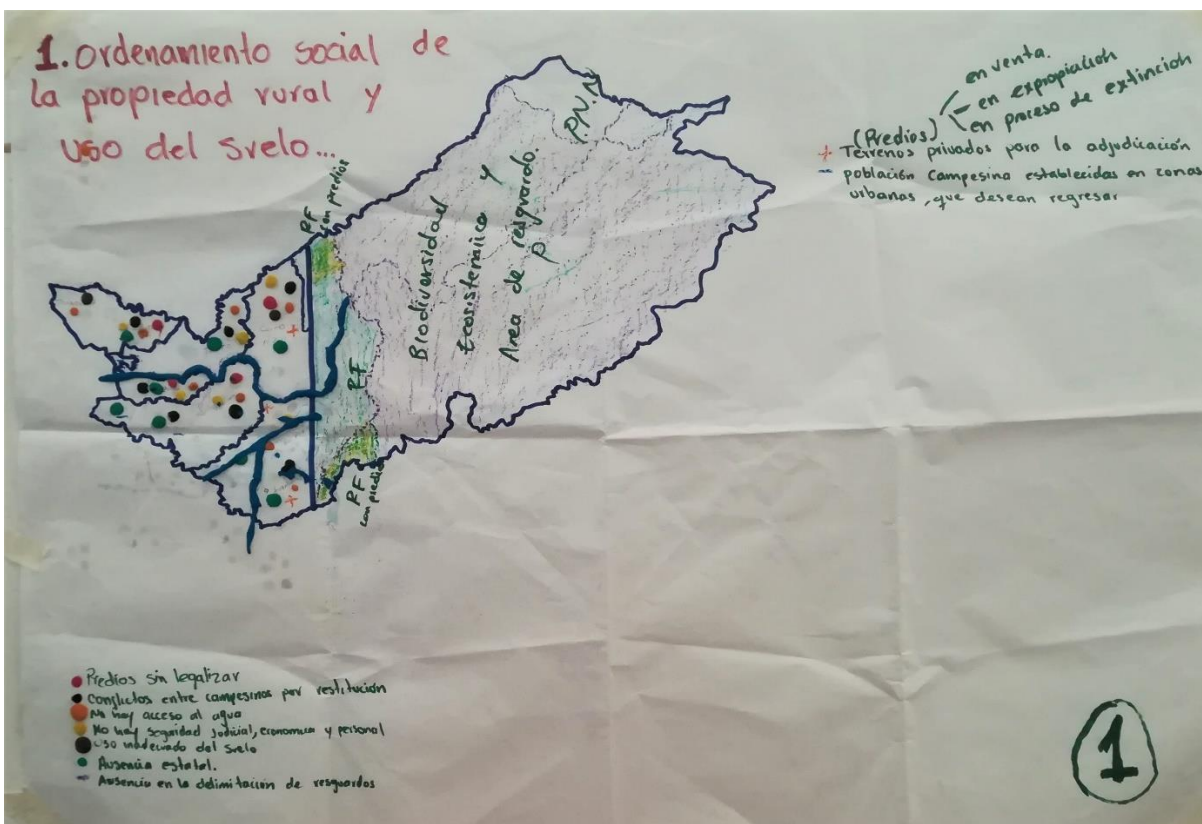 1. Ordenamiento social de
la propiedad rural y
uso del svelo...
en venta.
en expropiación
en proceso de extinción
(Predios)
+ Terrenos privados para la adjudicación
- población campesina establecidas en zonas
urbanas, que desean regresar
P.N.N
Biodiversidad
Ecosistemica y
Area de resguardo.
RF
con predios
RF
RF
con predios
Predios sin legalizar
Conflictos entre campesinos por restitución
No hay acceso al agua
No hay seguridad judicial, economica y personal
Uso inadecuado del svelo
Ausencia estatal.
Ausencia en la delimitación de resguardos
1